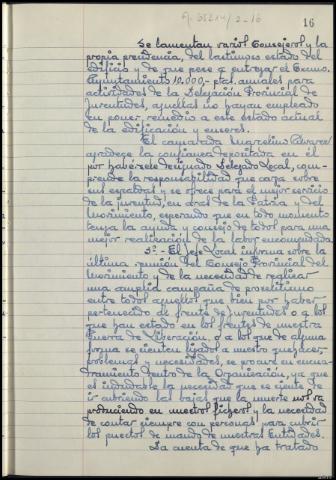 16
Se lamentan varios Consejeros y la
propia presidencia, del lastimoso estado del
edificio y de que pese a entregar el Excmo.
Ayuntamiento 10.000,- ptas. anuales para
actividades de la Delegación Provincial de
Juventudes, aquellas no hayan empleado
en poner remedio a este estado actual
de la edificación y enseres.
El camarada Marcelino Alvarez
agradece la confianza depositada en él
por habérsele designado Delegado Local, com-
prende la responsabilidad que carga sobre
sus espaldas y se ofrece para el mejor servicio
de la juventud, en aras de la Patria y del
Movimiento, esperando que en todo momento
tenga la ayuda y consejo de todos para una
mejor realización de la labor encomendada.
5º.- El Jefe Local informa sobre la
última reunión del Consejo Provincial del
Movimiento y de la necesidad de realizar
una amplia campaña de proselitismo
entre todos aquellos que bien por haber
pertenecido al frente de Juventudes o a los
que han estado en los frentes de nuestra
Guerra de Liberación, o a los que de alguna
forma se sienten ligados a nuestro quehacer,
problemas y necesidades, se procure en
dramiento dentro de la Organización, ya que
es indudable la necesidad que se siente de
ir cubriendo las bajas que la muerte nos va
produciendo en nuestros ficheros y la necesidad
de contar siempre con personas para cubrir
los puestos de mando de nuestras Entidades.
Da cuenta de que ha tratado